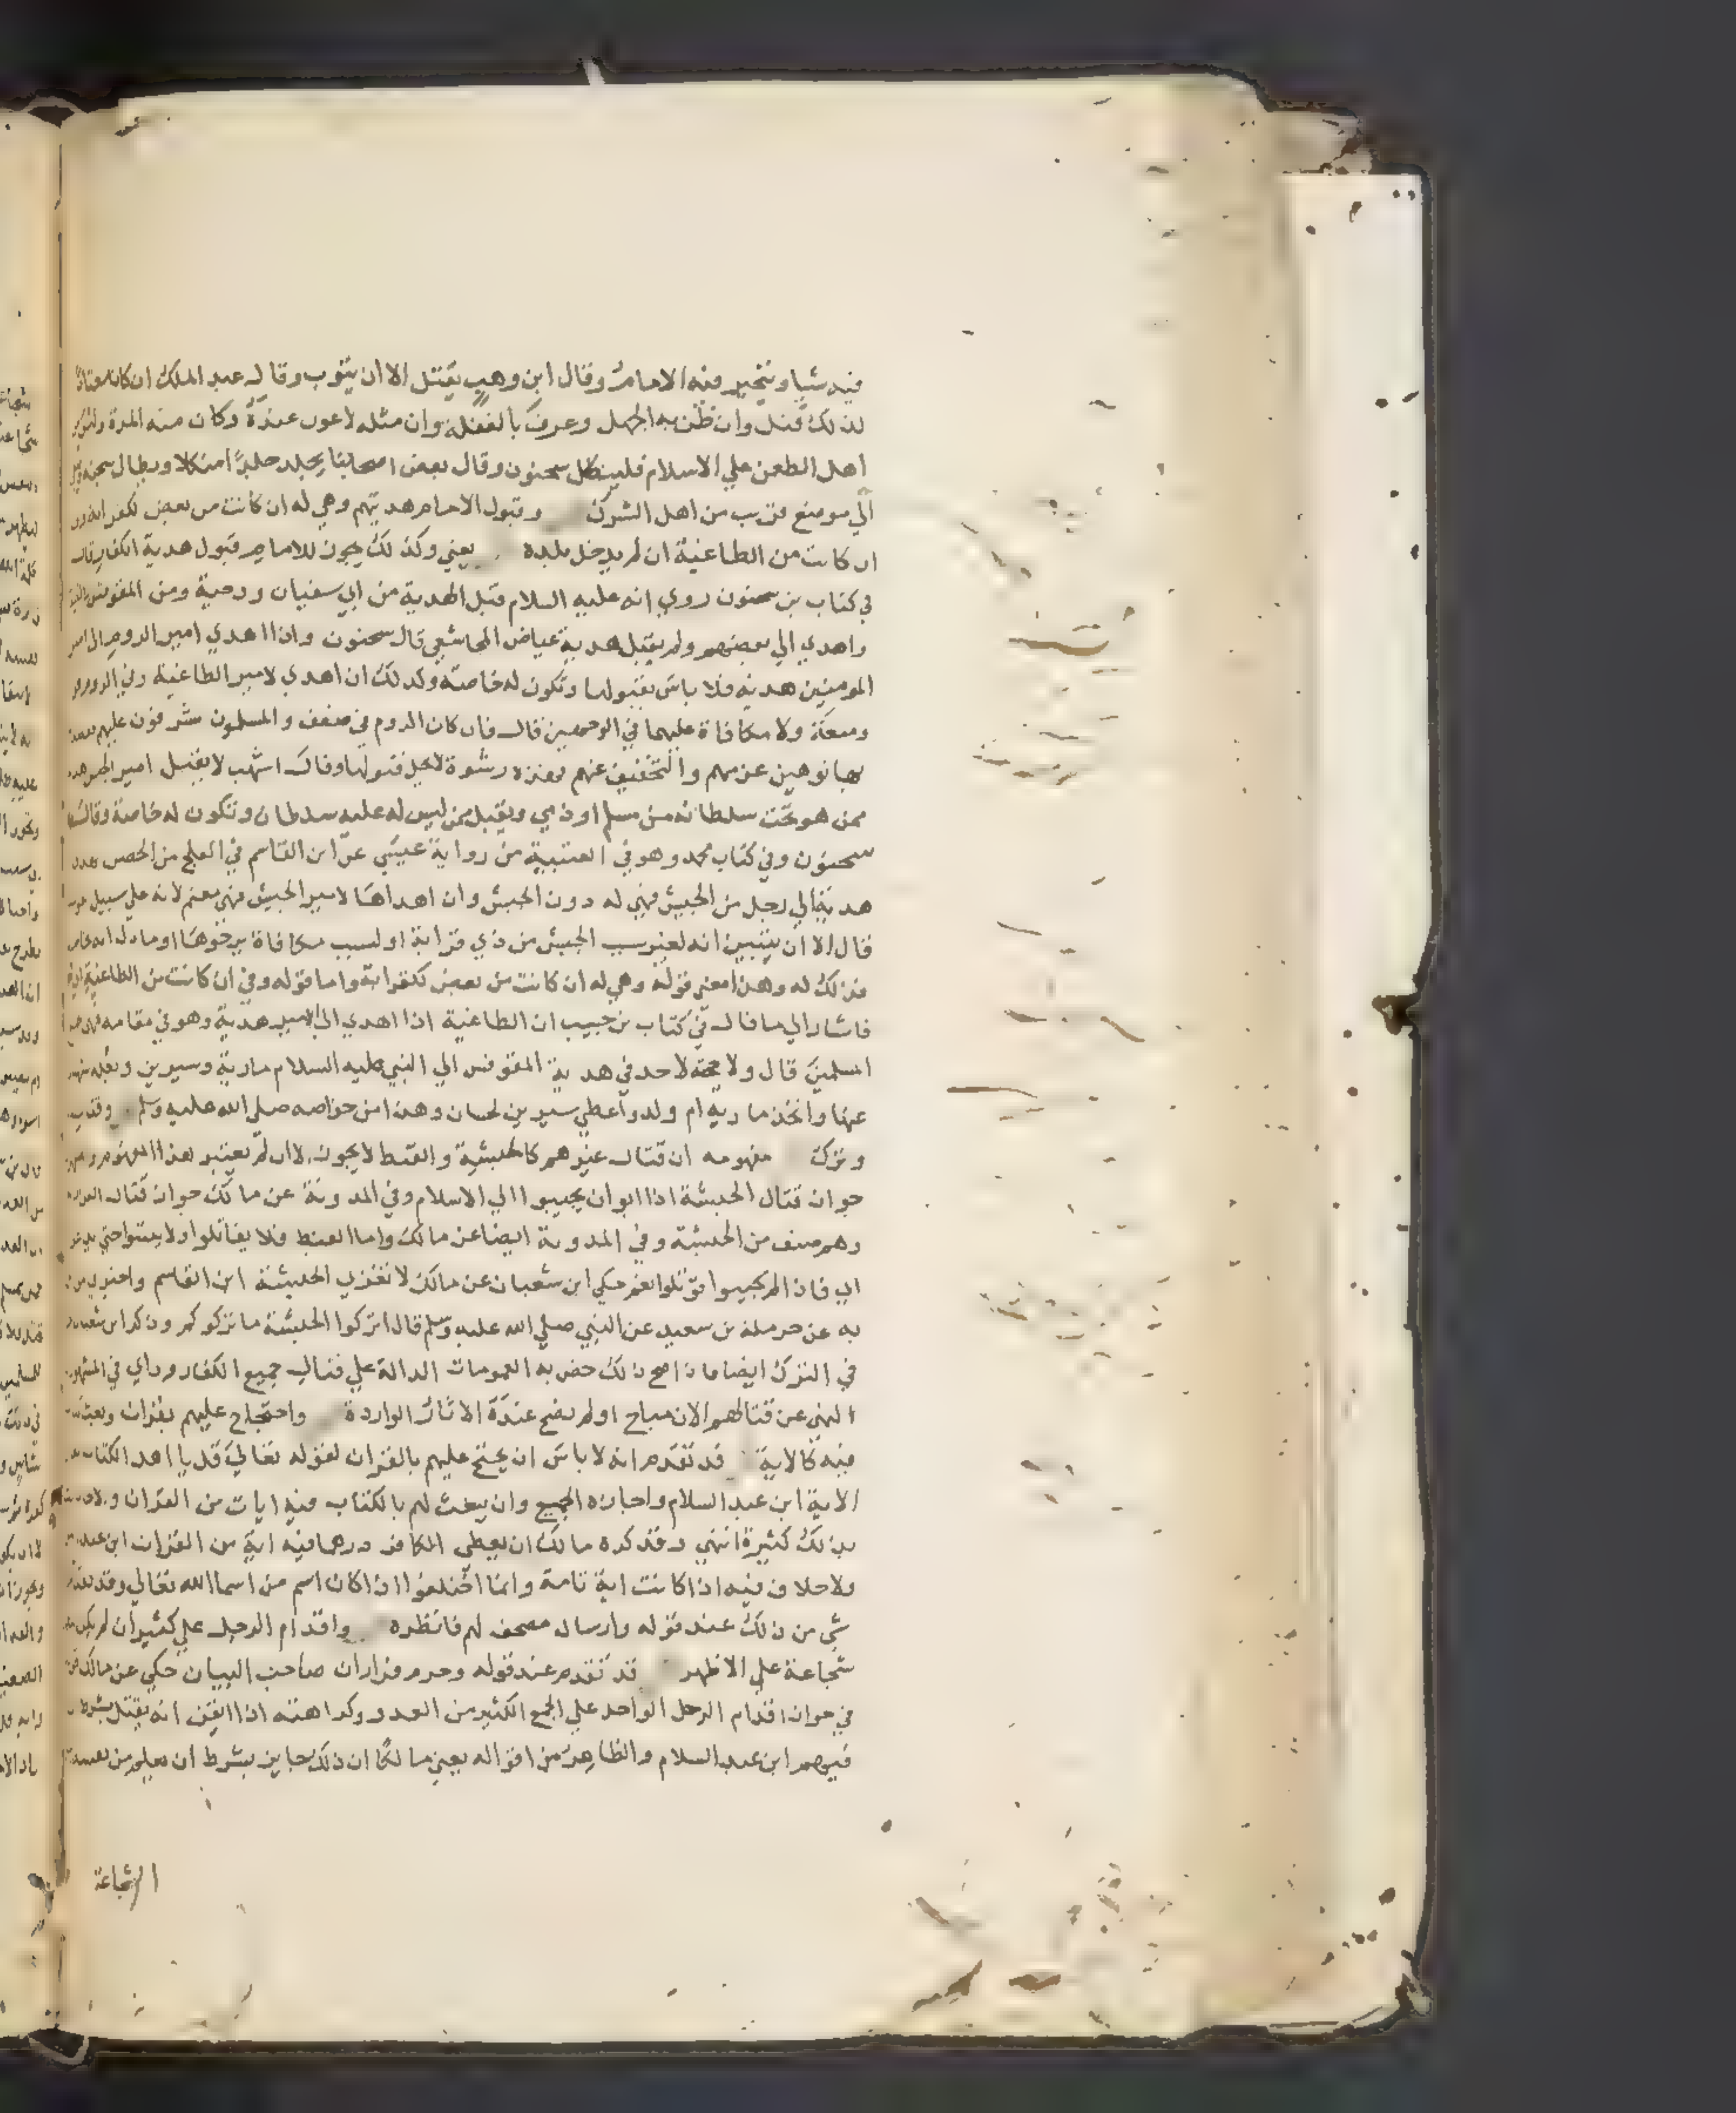 فيه شيا ويتخير فيه الامام وقال ابن وهب يقتل الا ان يتوب وقال عبد الملك ان كان معتادا
لذلك قتل وان ظن به الجهل وعرف بالغفلة وان مثله لا عون عنده وكان منه المرة وليس من
اهل الطعن علي الاسلام فلينكل سحنون وقال بعض اصحابنا يجلد جلدا منكلا ويطال سجنه
الي موضع قرب من اهل الشرك وقبول الامام هديتهم وهي له ان كانت من بعض لكقرابة
ان كانت من الطاغية ان لم يدخل بلده يعني وكذلك يجوز للامام قبول هدية الكفار قال
في كتاب بن سحنون روي انه عليه السلام قبل الهدية من ابي سفيان ودحية ومن المقوقس
واهدي الي بعضهم ولم يقبل هدية عياض المجاشعي قال سحنون واذا اهدي امير الروم الي امير
المومنين هدية فلا باس بقبولها وتكون له خاصة وكذلك ان اهدي لامير الطاغية
ومنعة ولا مكافاة عليهما في الوجهين قال فان كان الروم في ضعف والمسلمون مشرفون عليهم
بها توهين عزمهم والتخفيف عنهم فهذه رشوة لا يحل قبولها وقال اشهب لا يقبل امير الجيش
ممن هو تحت سلطانه من مسلم او ذمي ويقبل ممن ليس له عليه سلطان وتكون له خاصة وقال
سحنون وفي كتاب محمد وهو في العتبية من رواية عيسي عن ابن القاسم في العلج من الحصن
هدية الي رجل من الجيش فهي له دون الجيش وان اهداها لامير الجيش فهي مغنم لانه علي سبيل
قال الا ان يتبين انه لغير سبب الجيش من ذي قرابة او لسبب مكافاة يرجوها او ما دل انه
فذلك له وهذا معني قوله وهي له ان كانت من بعض لكقرابة واما قوله وفي ان كانت من الطاغية
فاشار الي ما قال في كتاب بن حبيب ان الطاغية اذا اهدي الي الامير هدية وهو في مقامه
المسلمين قال ولا حجة لاحد في هدية المقوقس الي النبي عليه السلام مارية وسيرين وبغلة
عنها واتخذ مارية ام ولد واعطي سيرين لحسان وهذا من خواصه صلي الله عليه وسلم
وترك مفهومه ان قتال غيرهم كالحبشية والقبط لا يجوز لا ان لم يعتبر هذا المفهوم
جواز قتال الحبشة اذا ابوا ان يجيبوا الي الاسلام وفي المدونة عن مالك جواز قتال
وهم صنف من الحبشة وفي المدونة ايضا عن مالك واما القبط فلا يقاتلوا ولا يبيتوا حتي
الي فاذا لم يجيبوا قوتلوا نعم حكي ابن شعبان عن مالك لا تغزي الحبشة ابن القاسم
به عن حرملة بن سعيد عن النبي صلي الله عليه وسلم قال اتركوا الحبشة ما تركوكم وذكر ابن شعبان
في الترك ايضا فاذا صح ذلك خص به العمومات الدالة علي قتال جميع الكفار وراي في المشهور
النهي عن قتالهم الان مباح او لم يصح عنده الاثار الواردة واحتجاج عليهم بقران وبعث
فيه كالاية قد تقدم انه لا باس ان يحتج عليهم بالقران لقوله تعالي قل يا اهل الكتاب
الاية ابن عبد السلام واجازه الجميع وان يبعث لهم بالكتاب فيه ايات من القران
بذلك كثيرة انتهي وقد كره مالك ان يعطي الكافر درهما فيه اية من القران ابن عبد
ولا خلاف فيه اذا كانت اية تامة وانما اختلفوا اذا كان اسم من اسما الله تعالي وقد
شي من ذلك عند قوله وارسال مصحف لهم فانظره واقدام الرجل علي كثير ان لم يكن
شجاعة علي الاظهر قد تقدم عند قوله وحرم فرار ان صاحب البيان حكي عن مالك
في جواز اقدام الرجل الواحد علي الجمع الكثير من العدو وكراهته اذا ايقن انه يقتل
فيهم ابن عبد السلام والظاهر من اقواله يعني مالكا ان ذلك جايز بشرط ان يعلم من نفسه
الشجاعة